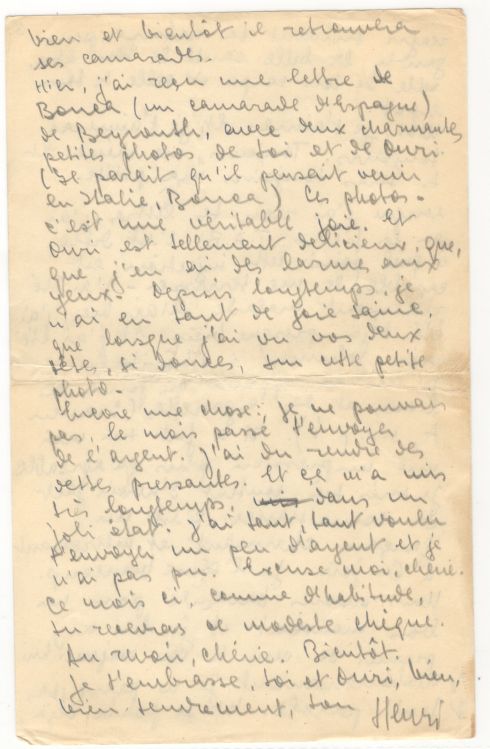 bien et bientôt il retrouvera
ses camarades.
Hier, j'ai reçu une lettre de
Bonca (un camarade d'Espagne)
de Beyrouth, avec deux charmantes
petites photos de toi et de Ouri.
(Il parait qu'il pensait venir
en Italie, Bonca) Ces photos -
c'est une véritable joie. Et
Ouri est tellement délicieux, que,
que j'en ai des larmes aux
yeux. Depuis longtemps, je
n'ai eu tant de joie saine,
que lorsque j'ai vu vos deux
têtes, si douces, sur cette petite
photo.
Encore une chose: je ne pouvais
pas, le mois passé t'envoyer
de l'argent. J'ai du rendre des
dettes pressantes. Et ça m'a mis
très longtemps, dans un
joli état. J'ai tant, tant voulu
t'envoyer un peu d'argent et je
n'ai pas pu. Excuse moi, chérie.
Ce mois ci, comme d'habitude,
tu recevras ce modeste chèque.
Au revoir, chérie. Bientôt.
Je t'embrasse, toi et Ouri, bien,
bien tendrement, ton Henri